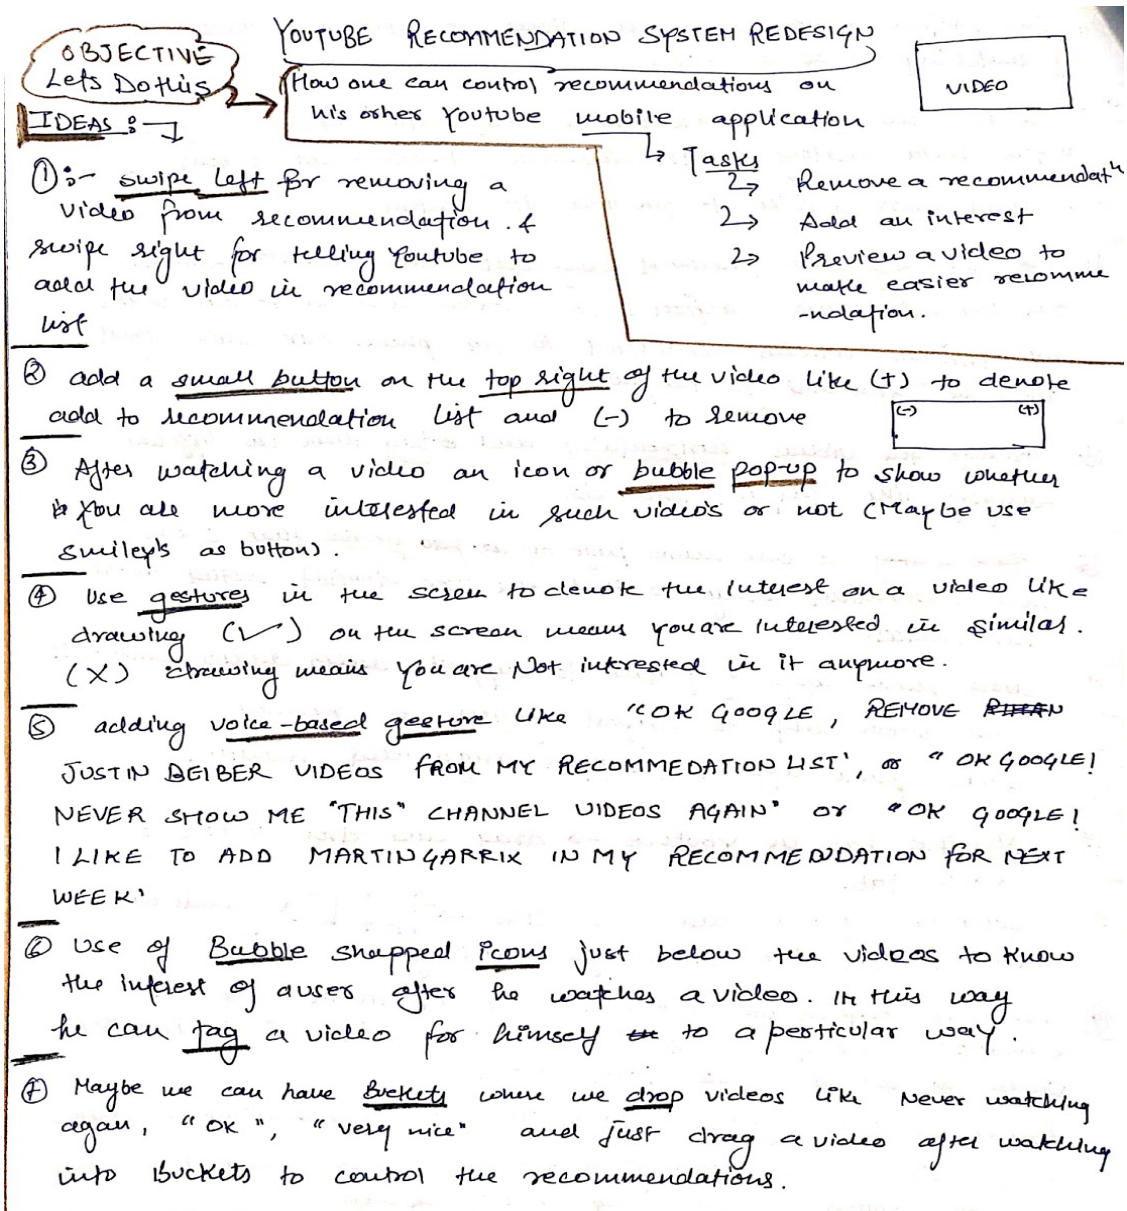 YOUTUBE RECOMMENDATION SYSTEM REDESIGN
OBJECTIVE
Lets Do this
How one can control recommendations on
his other Youtube mobile application
VIDEO
Tasks
Remove a recommendat
Add an interest
Preview a video to
make easier recomme
-ndation.
IDEAS :-
① :- swipe left for removing a
video from recommendation. &
swipe right for telling Youtube to
add the video in recommendation
list
② add a small button on the top right of the video like (+) to denote
add to recommendation list and (-) to remove
(-) (+)
③ After watching a video an icon or bubble pop-up to show whether
you are more interested in such video's or not (Maybe use
smiley's as button).
④ Use gestures in the screen to denote the interest on a video like
drawing (✓) on the screen means you are interested in similar.
(X) drawing means you are Not interested in it anymore.
⑤ adding voice-based gesture like "OK GOOGLE, REMOVE
JUSTIN BEIBER VIDEOS FROM MY RECOMMEDATION LIST', or "OK GOOGLE!
NEVER SHOW ME "THIS" CHANNEL VIDEOS AGAIN" or "OK GOOGLE!
I LIKE TO ADD MARTIN GARRIX IN MY RECOMMENDATION FOR NEXT
WEEK'
⑥ Use of Bubble shapped icons just below the videos to know
the interest of a user after he watches a video. In this way
he can tag a video for himself to a perticular way.
⑦ Maybe we can have Buckets where we drop videos like Never watching
again, "OK", "very nice" and just drag a video after watching
into Buckets to control the recommendations.